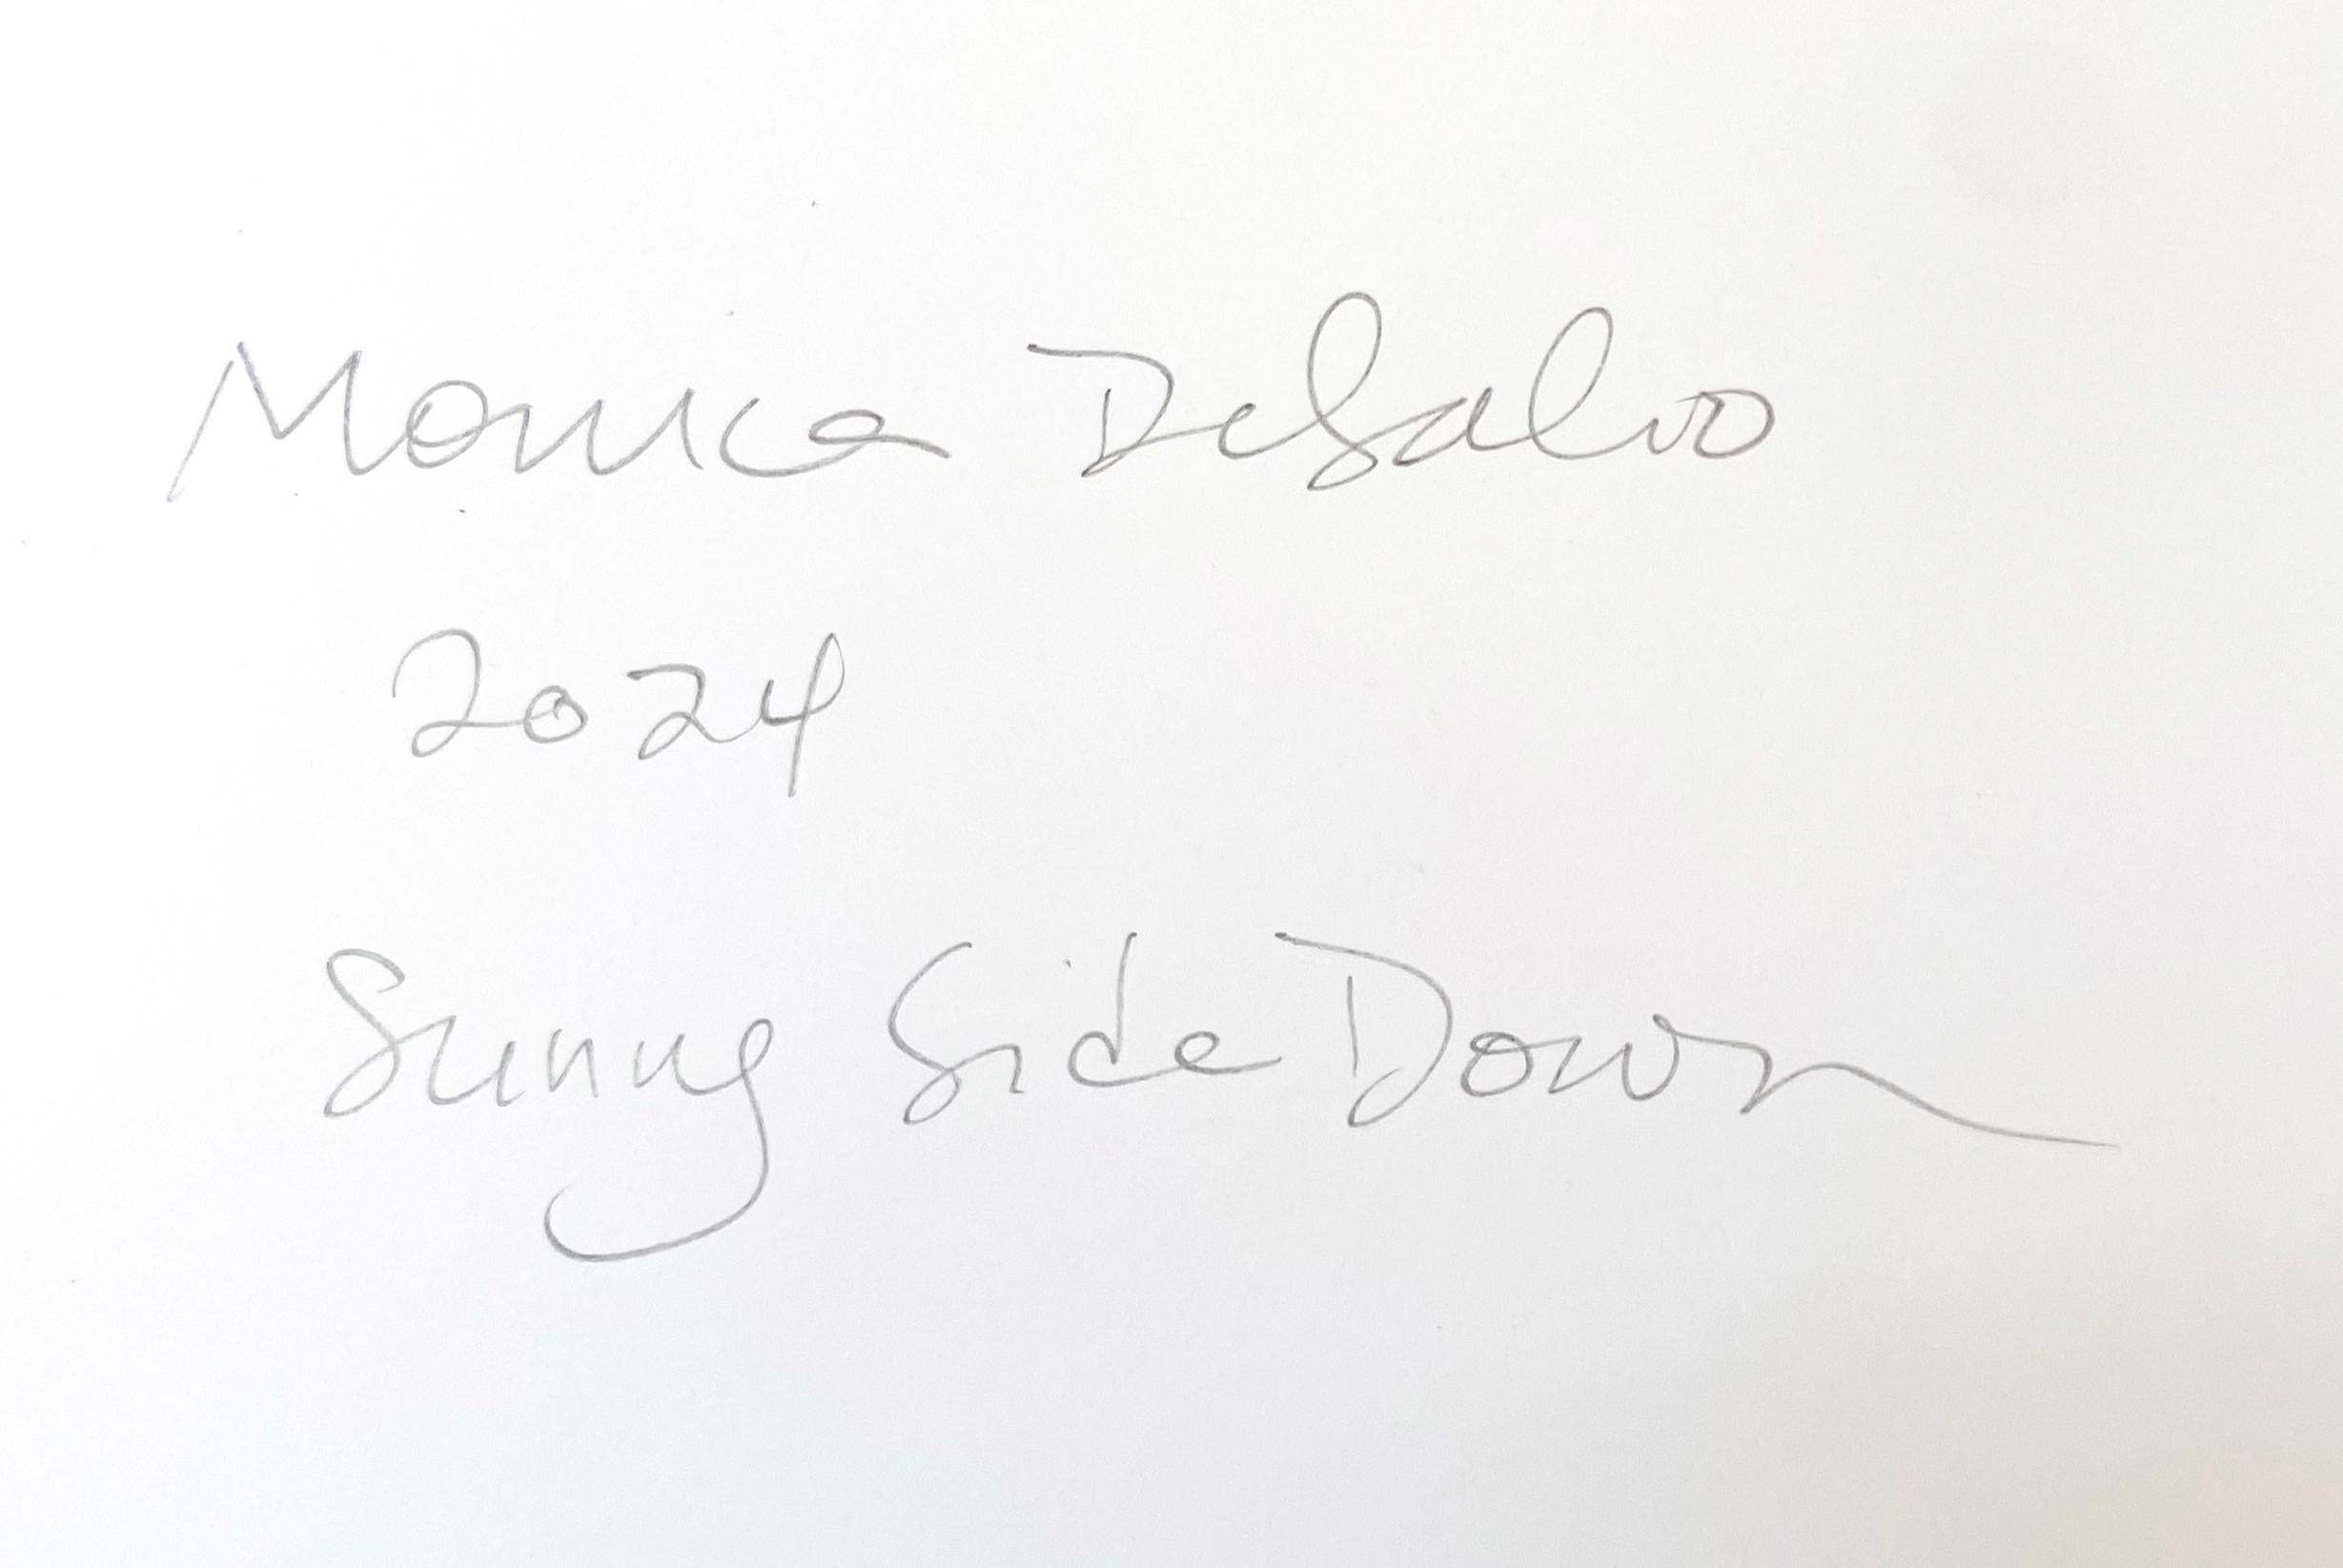 Monica DeSalvo
2024
Sunny Side Down